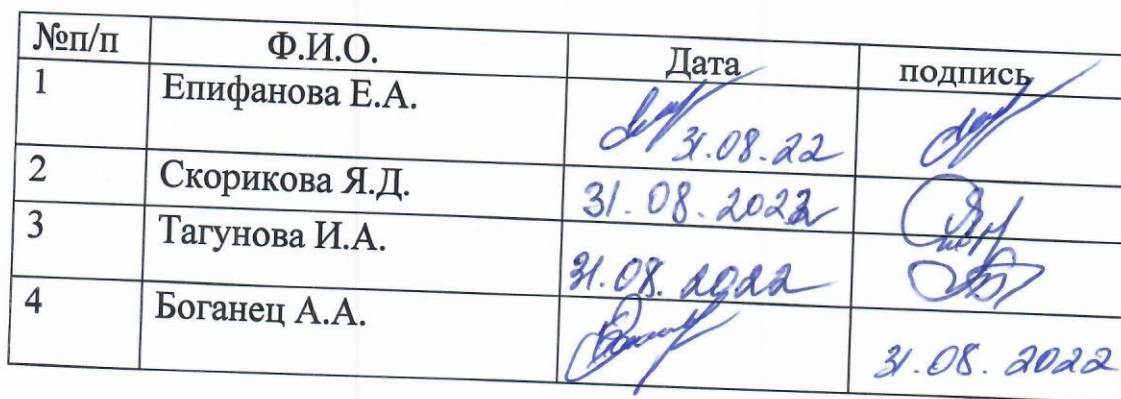 №п/п Ф.И.О. Дата подпись
1 Епифанова Е.А. 31.08.22
2 Скорикова Я.Д. 31.08.2022
3 Тагунова И.А. 31.08.2022
4 Боганец А.А. 31.08.2022